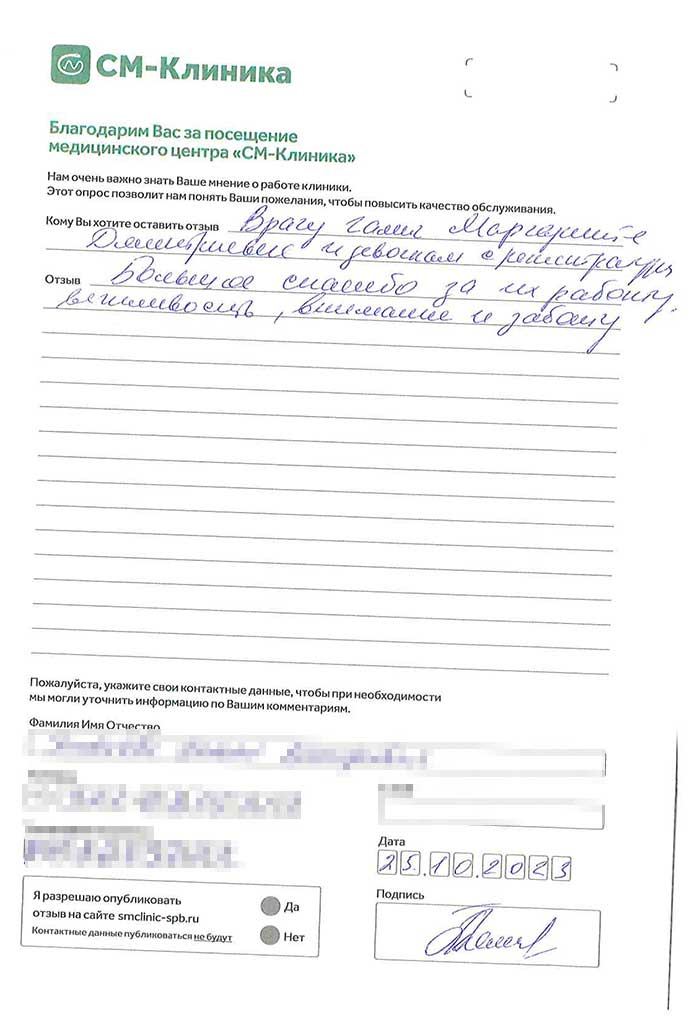 СМ-Клиника
Благодарим Вас за посещение
медицинского центра «СМ-Клиника»
Нам очень важно знать Ваше мнение о работе клиники.
Этот опрос позволит нам понять Ваши пожелания, чтобы повысить качество обслуживания.
Кому Вы хотите оставить отзыв Врачу Маргарите
Дмитриевне и девочкам с регистрации
Отзыв Большое спасибо за их работу,
вежливость, внимание и заботу
Пожалуйста, укажите свои контактные данные, чтобы при необходимости
мы могли уточнить информацию по Вашим комментариям.
Фамилия Имя Отчество
Дата
25.10.2023
Подпись
Я разрешаю опубликовать
отзыв на сайте smclinic-spb.ru
Контактные данные публиковаться не будут
Да
Нет